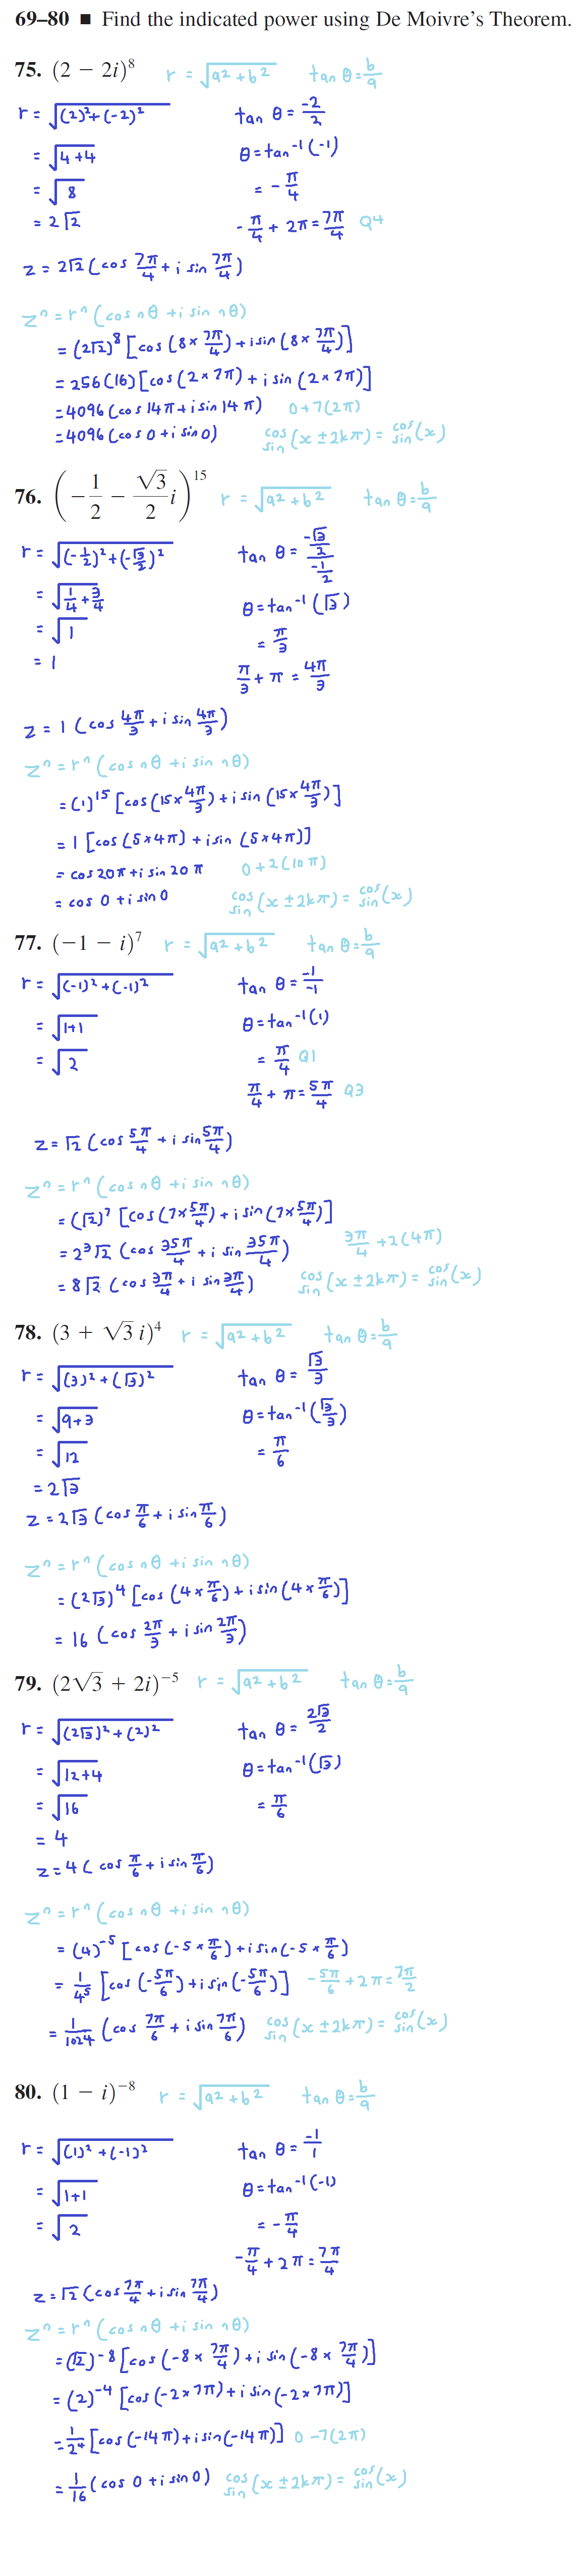 69–80 ■ Find the indicated power using De Moivre's Theorem.
75. (2 − 2i)⁸ r = √(a² + b²) tan θ = b/a
r = √((2)² + (-2)²) tan θ = -2/2
= √(4 + 4) θ = tan⁻¹(-1)
= √8 = -π/4
= 2√2 -π/4 + 2π = 7π/4 Q4
z = 2√2 (cos 7π/4 + i sin 7π/4)
zⁿ = rⁿ (cos nθ + i sin nθ)
= (2√2)⁸ [cos (8 × 7π/4) + i sin (8 × 7π/4)]
= 256(16) [cos (2 × 7π) + i sin (2 × 7π)]
= 4096 (cos 14π + i sin 14π) 0 + 7(2π)
= 4096 (cos 0 + i sin 0) cos/sin (x ± 2kπ) = cos/sin (x)
76. (−1/2 − √3/2 i)¹⁵ r = √(a² + b²) tan θ = b/a
r = √((-1/2)² + (-√3/2)²) tan θ = (-√3/2)/(-1/2)
= √(1/4 + 3/4) θ = tan⁻¹(√3)
= √1 = π/3
= 1 π/3 + π = 4π/3
z = 1 (cos 4π/3 + i sin 4π/3)
zⁿ = rⁿ (cos nθ + i sin nθ)
= (1)¹⁵ [cos (15 × 4π/3) + i sin (15 × 4π/3)]
= 1 [cos (5 × 4π) + i sin (5 × 4π)]
= cos 20π + i sin 20π 0 + 2(10π)
= cos 0 + i sin 0 cos/sin (x ± 2kπ) = cos/sin (x)
77. (−1 − i)⁷ r = √(a² + b²) tan θ = b/a
r = √((-1)² + (-1)²) tan θ = -1/-1
= √(1+1) θ = tan⁻¹(1)
= √2 = π/4 Q1
π/4 + π = 5π/4 Q3
z = √2 (cos 5π/4 + i sin 5π/4)
zⁿ = rⁿ (cos nθ + i sin nθ)
= (√2)⁷ [cos (7 × 5π/4) + i sin (7 × 5π/4)]
= 2³√2 (cos 35π/4 + i sin 35π/4) 3π/4 + 2(4π)
= 8√2 (cos 3π/4 + i sin 3π/4) cos/sin (x ± 2kπ) = cos/sin (x)
78. (3 + √3 i)⁴ r = √(a² + b²) tan θ = b/a
r = √((3)² + (√3)²) tan θ = √3/3
= √(9+3) θ = tan⁻¹(√3/3)
= √12 = π/6
= 2√3
z = 2√3 (cos π/6 + i sin π/6)
zⁿ = rⁿ (cos nθ + i sin nθ)
= (2√3)⁴ [cos (4 × π/6) + i sin (4 × π/6)]
= 16 (cos 2π/3 + i sin 2π/3)
79. (2√3 + 2i)⁻⁵ r = √(a² + b²) tan θ = b/a
r = √((2√3)² + (2)²) tan θ = 2√3/2
= √(12+4) θ = tan⁻¹(√3)
= √16 = π/6
= 4
z = 4 (cos π/6 + i sin π/6)
zⁿ = rⁿ (cos nθ + i sin nθ)
= (4)⁻⁵ [cos (-5 × π/6) + i sin (-5 × π/6)
= 1/4⁵ [cos (-5π/6) + i sin (-5π/6)] -5π/6 + 2π = 7π/2
= 1/1024 (cos 7π/6 + i sin 7π/6) cos/sin (x ± 2kπ) = cos/sin (x)
80. (1 − i)⁻⁸ r = √(a² + b²) tan θ = b/a
r = √((1)² + (-1)²) tan θ = -1/1
= √(1+1) θ = tan⁻¹(-1)
= √2 = -π/4
-π/4 + 2π = 7π/4
z = √2 (cos 7π/4 + i sin 7π/4)
zⁿ = rⁿ (cos nθ + i sin nθ)
= (√2)⁻⁸ [cos (-8 × 7π/4) + i sin (-8 × 7π/4)]
= (2)⁻⁴ [cos (-2 × 7π) + i sin (-2 × 7π)]
= 1/2⁴ [cos (-14π) + i sin (-14π)] 0 - 7(2π)
= 1/16 (cos 0 + i sin 0) cos/sin (x ± 2kπ) = cos/sin (x)